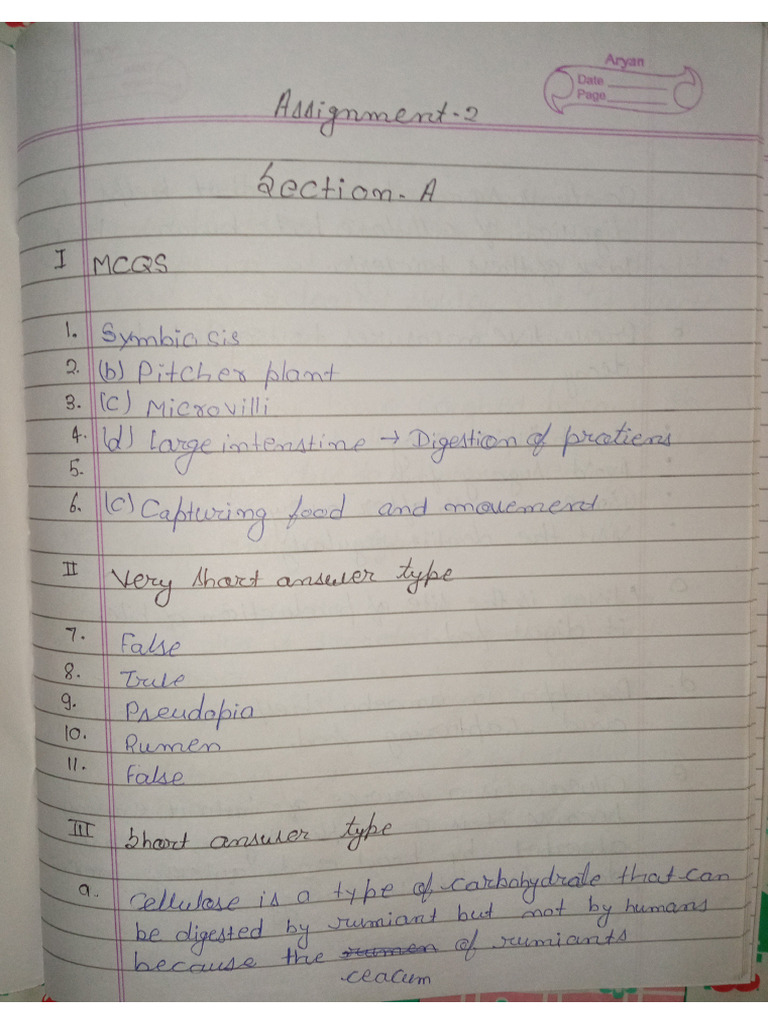 Aryan
Date
Page
Assignment-2
Section-A
I MCQS
1. Symbiosis
2. (b) Pitcher plant
3. (c) Microvilli
4. (d) Large intenstine → Digestion of protiens
5.
6. (c) Capturing food and movement
II Very short answer type
7. False
8. True
9. Pseudopia
10. Rumen
11. False
III Short answer type
a. Cellulose is a type of carbohydrate that can
be digested by rumiant but not by humans
because the rumen of rumiants
ceacum